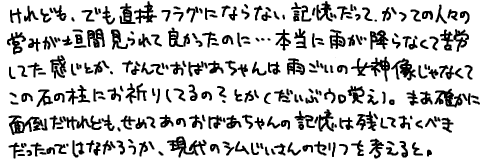 けれども、でも直接フラグにならない記憶だって、かつての人々の
営みが垣間見られて良かったのに…本当に雨が降らなくて苦労
してた感じとか、なんでおばあちゃんは雨ごいの女神像じゃなくて
この石の柱にお祈りしてるの？とか（だいぶウロ覚え）。まあ確かに
面倒だけれども、せめてあのおばあちゃんの記憶は残しておくべき
だったのではなかろうか、現代のシムじいさんのセリフを考えると。